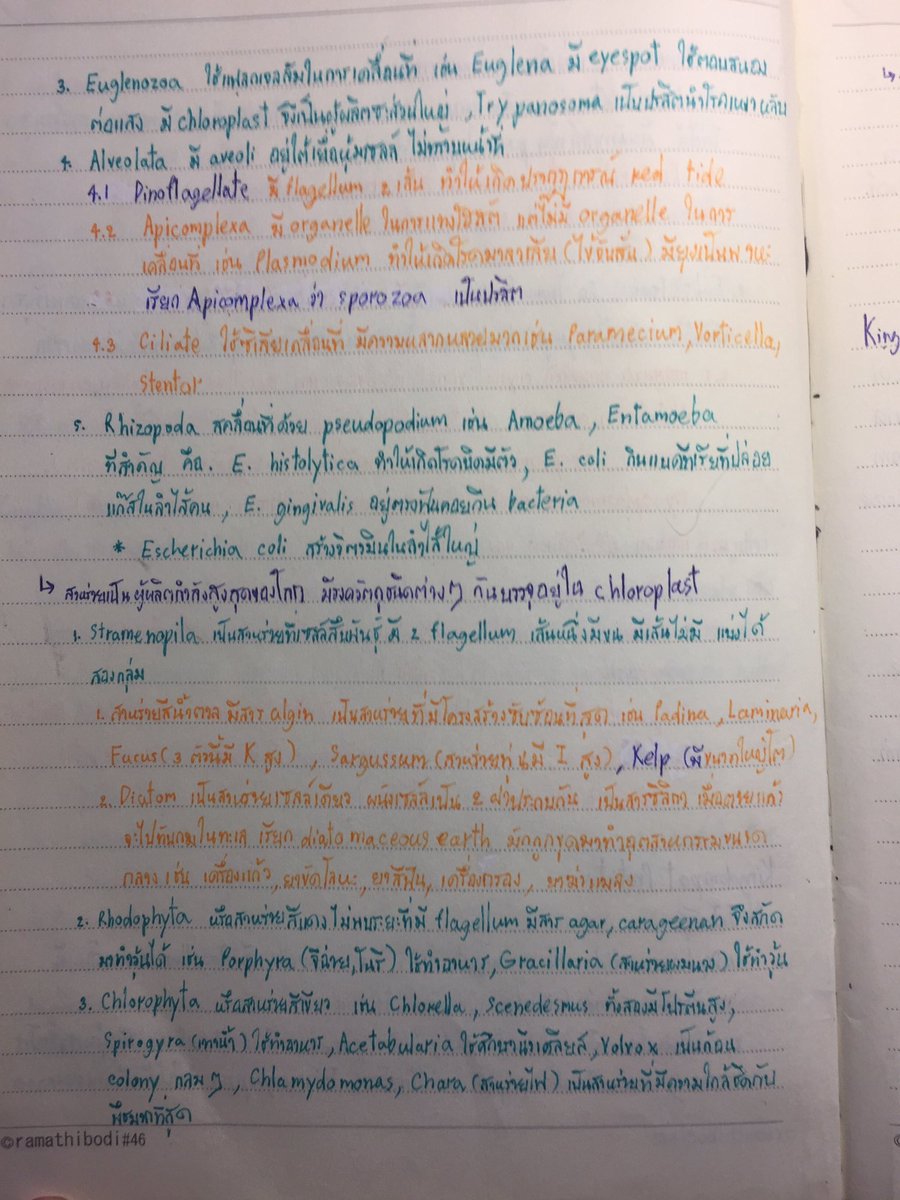 3. Euglenozoa ใช้แฟลกเจลลัมในการเคลื่อนที่ เช่น Euglena มี eyespot ใช้ตอบสนอง
ต่อแสง มี chloroplast จึงเป็นผู้ผลิตซะส่วนใหญ่, Trypanosoma เป็นปรสิตนำโรคเหงาหลับ
4. Alveolata มี aveoli อยู่ใต้เยื่อหุ้มเซลล์ ไม่ทราบหน้าที่
4.1 Dinoflagellate มี flagellum 2 เส้น ทำให้เกิดปรากฏการณ์ red tide
4.2 Apicomplexa มี organelle ในการแทงโฮสต์ แต่ไม่มี organelle ในการ
เคลื่อนที่ เช่น Plasmodium ทำให้เกิดโรคมาลาเรีย (ไข้จับสั่น) มียุงเป็นพาหะ
เรียก Apicomplexa ว่า sporozoa เป็นปรสิต
4.3 Ciliate ใช้ซิเลียเคลื่อนที่ มีความหลากหลายมากเช่น Paramecium, Vorticella,
Stentor
5. Rhizopoda เคลื่อนที่ด้วย pseudopodium เช่น Amoeba, Entamoeba
ที่สำคัญ คือ. E. histolytica ทำให้เกิดโรคบิดมีตัว, E. coli กินแบคทีเรียที่ปล่อย
แก๊สในลำไส้คน, E. gingivalis อยู่ตามฟันคอยกิน bacteria
* Escherichia coli สร้างวิตามินในลำไส้ใหญ่
↳ สาหร่ายเป็นผู้ผลิตกำลังสูงสุดของโลก มีรงควัตถุชนิดต่างๆ กันบรรจุอยู่ใน chloroplast
1. Stramenopila เป็นสาหร่ายที่เซลล์สืบพันธุ์ มี 2 flagellum เส้นหนึ่งมีขน มีเส้นไม่มี แบ่งได้
สองกลุ่ม
1. สาหร่ายสีน้ำตาล มีสาร algin เป็นสาหร่ายที่มีโครงสร้างซับซ้อนที่สุด เช่น Padina, Laminaria,
Fucus (3 ตัวนี้มี K สูง), Sargussum (สาหร่ายทุ่นมี I สูง), Kelp (มีขนาดใหญ่โต)
2. Diatom เป็นสาหร่ายเซลล์เดียว ผนังเซลล์เป็น 2 ฝาประกบกัน เป็นสารซิลิกา เมื่อตายแล้ว
จะไปทับถมในทะเล เรียก diatomaceous earth มักถูกขุดมาทำอุตสาหกรรมขนาด
กลาง เช่น เครื่องแก้ว, ยาขัดโลหะ, ยาสีฟัน, เครื่องกรอง, ยาฆ่าแมลง
2. Rhodophyta หรือสาหร่ายสีแดง ไม่พบระยะที่มี flagellum มีสาร agar, carageenan จึงสกัด
มาทำวุ้นได้ เช่น Porphyra (จีฉ่าย, โนริ) ใช้ทำอาหาร, Gracillaria (สาหร่ายผมนาง) ใช้ทำวุ้น
3. Chlorophyta หรือสาหร่ายสีเขียว เช่น Chlorella, Scenedesmus ทั้งสองมีโปรตีนสูง,
Spirogyra (เทาน้ำ) ใช้ทำอาหาร, Acetabularia ใช้ศึกษานิวเคลียส, Volvox เป็นก้อน
colony กลมๆ, Chlamydomonas, Chara (สาหร่ายไฟ) เป็นสาหร่ายที่มีความใกล้ชิดกับ
พืชมากที่สุด
©ramathibodi#46
King